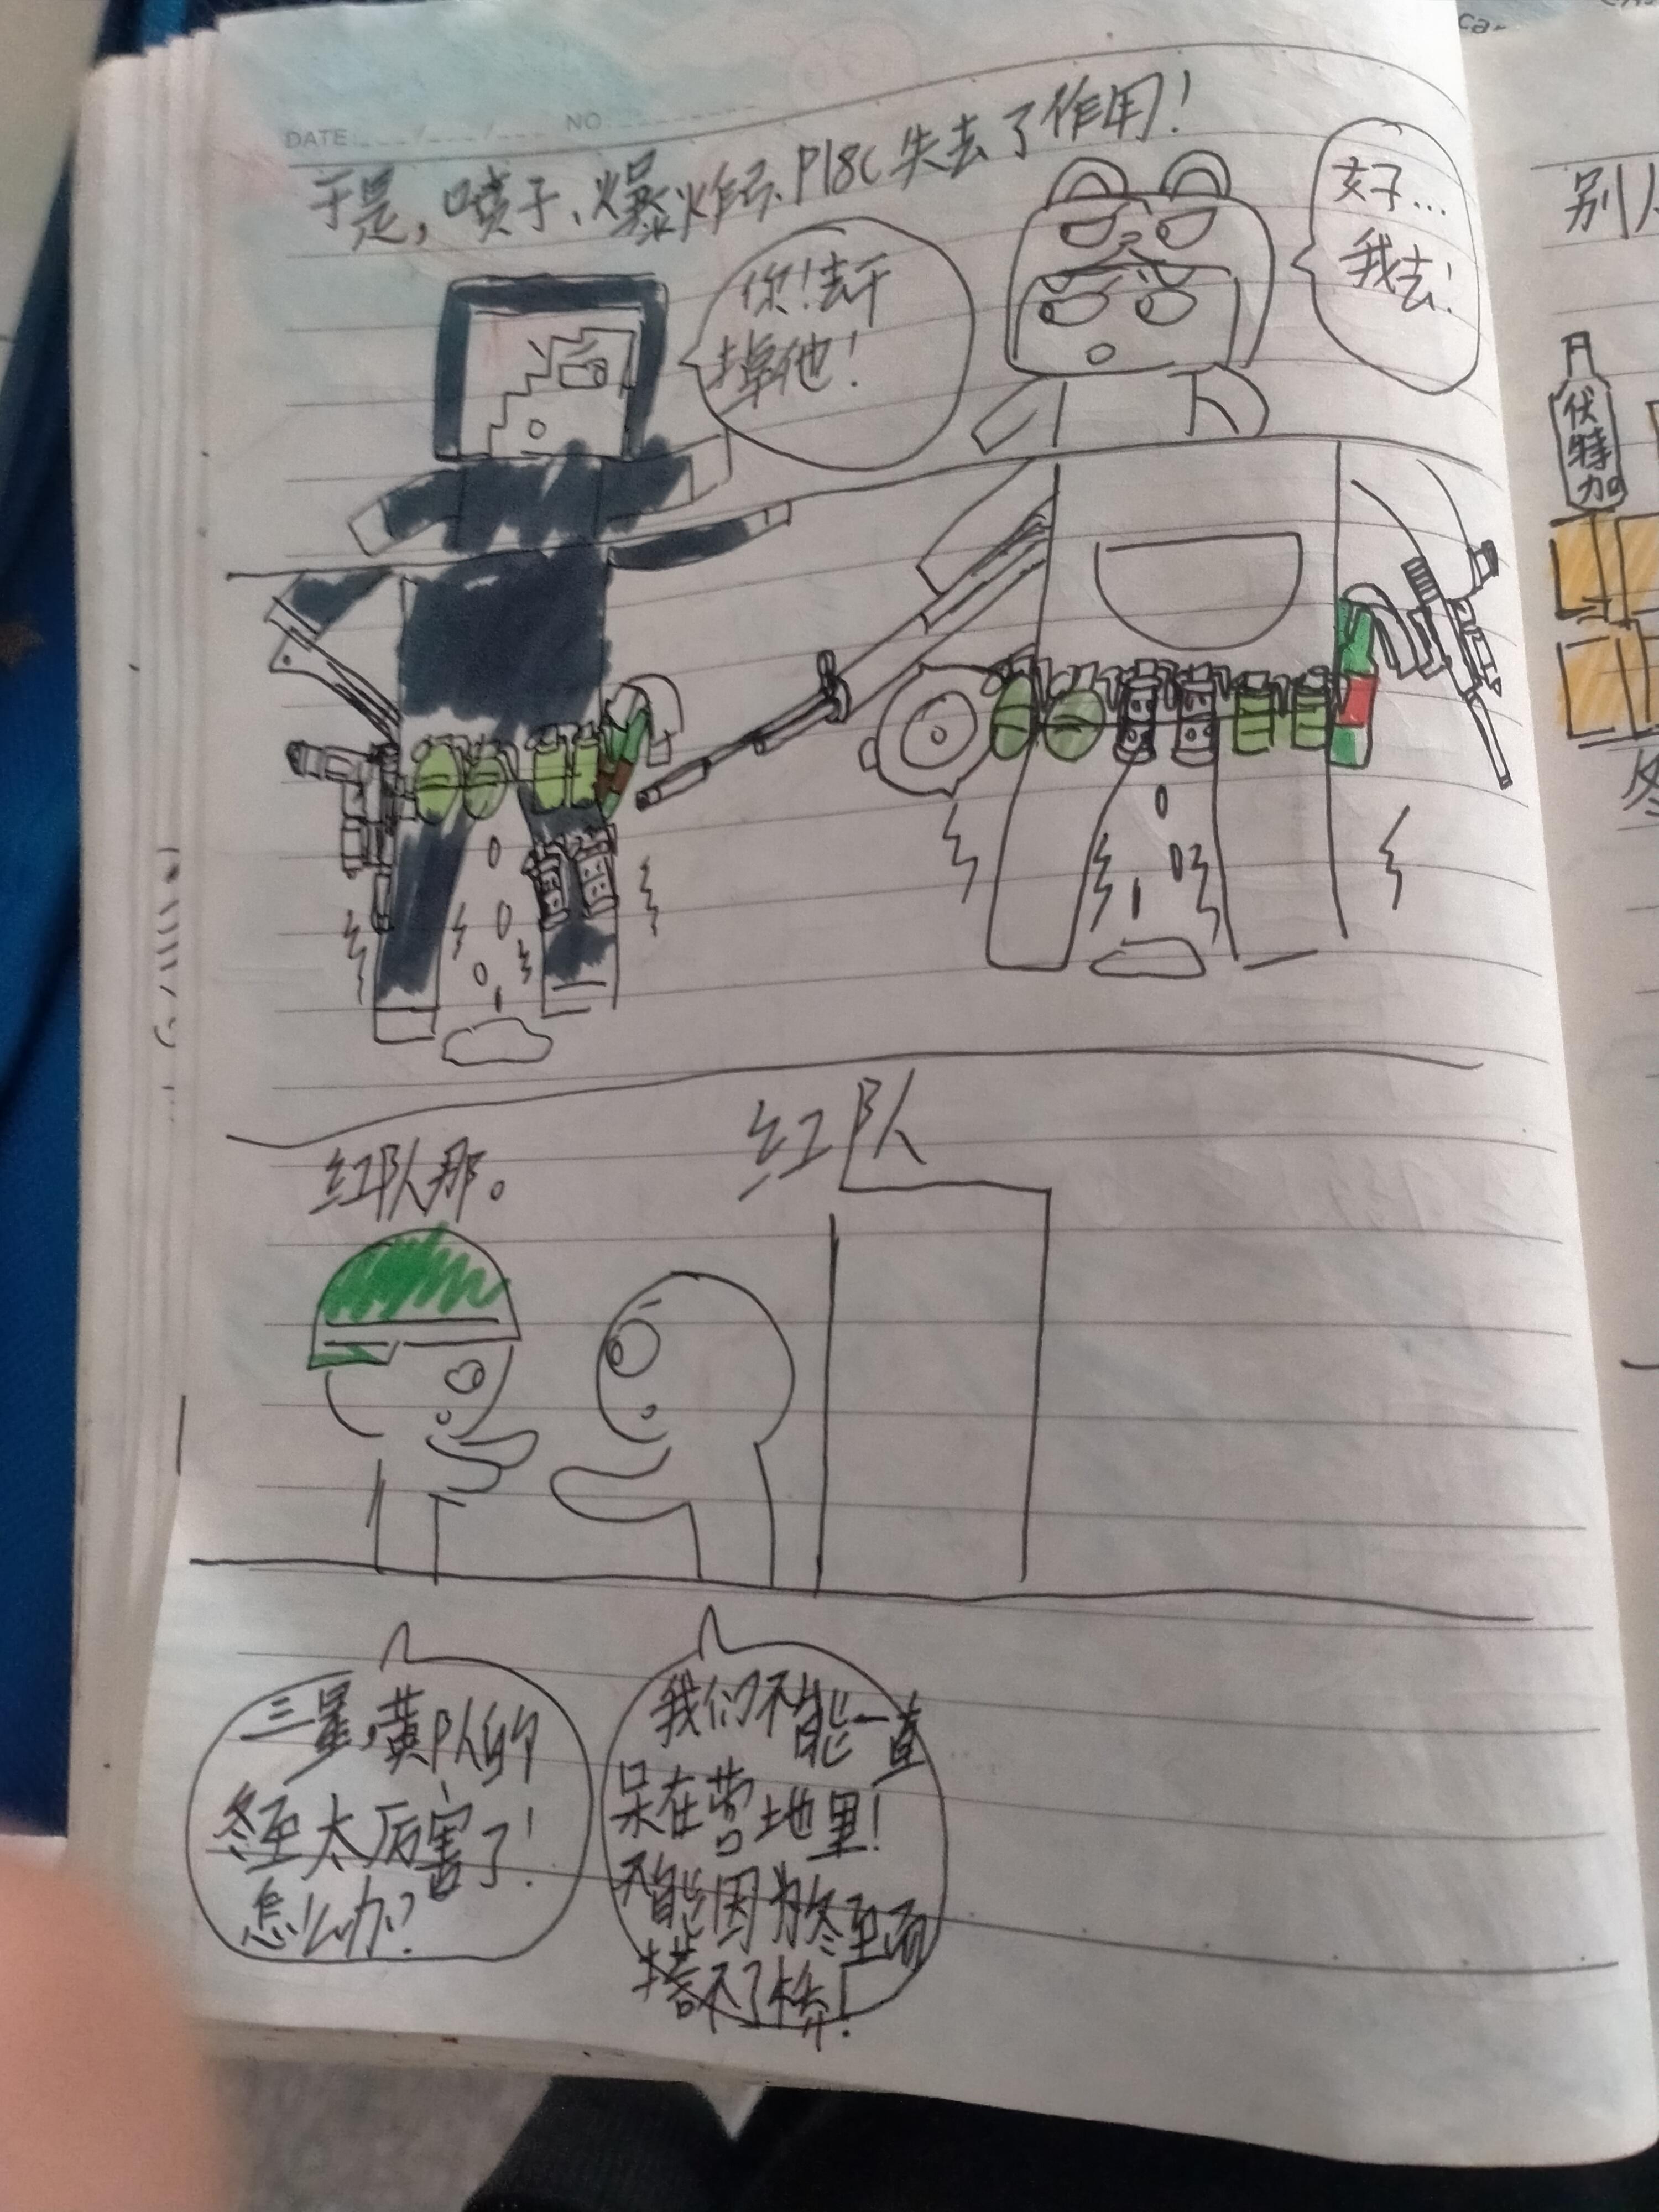 DATE: NO
于是，喷子、爆炸弓、P18C失去了作用！
你！去干
掉他！
好…
我去！
红队那。
红队
三星，黄队的
冬至太厉害了！
怎么办？
我们不能一直
呆在营地里！
不能因为冬至而
搭不了桥！
别人
伏
特
加
冬